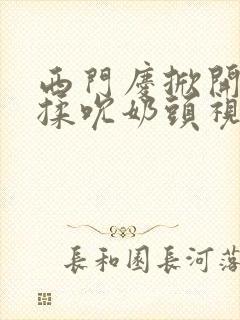 西門慶掀開
揉吮奶頭視
長和園長河落